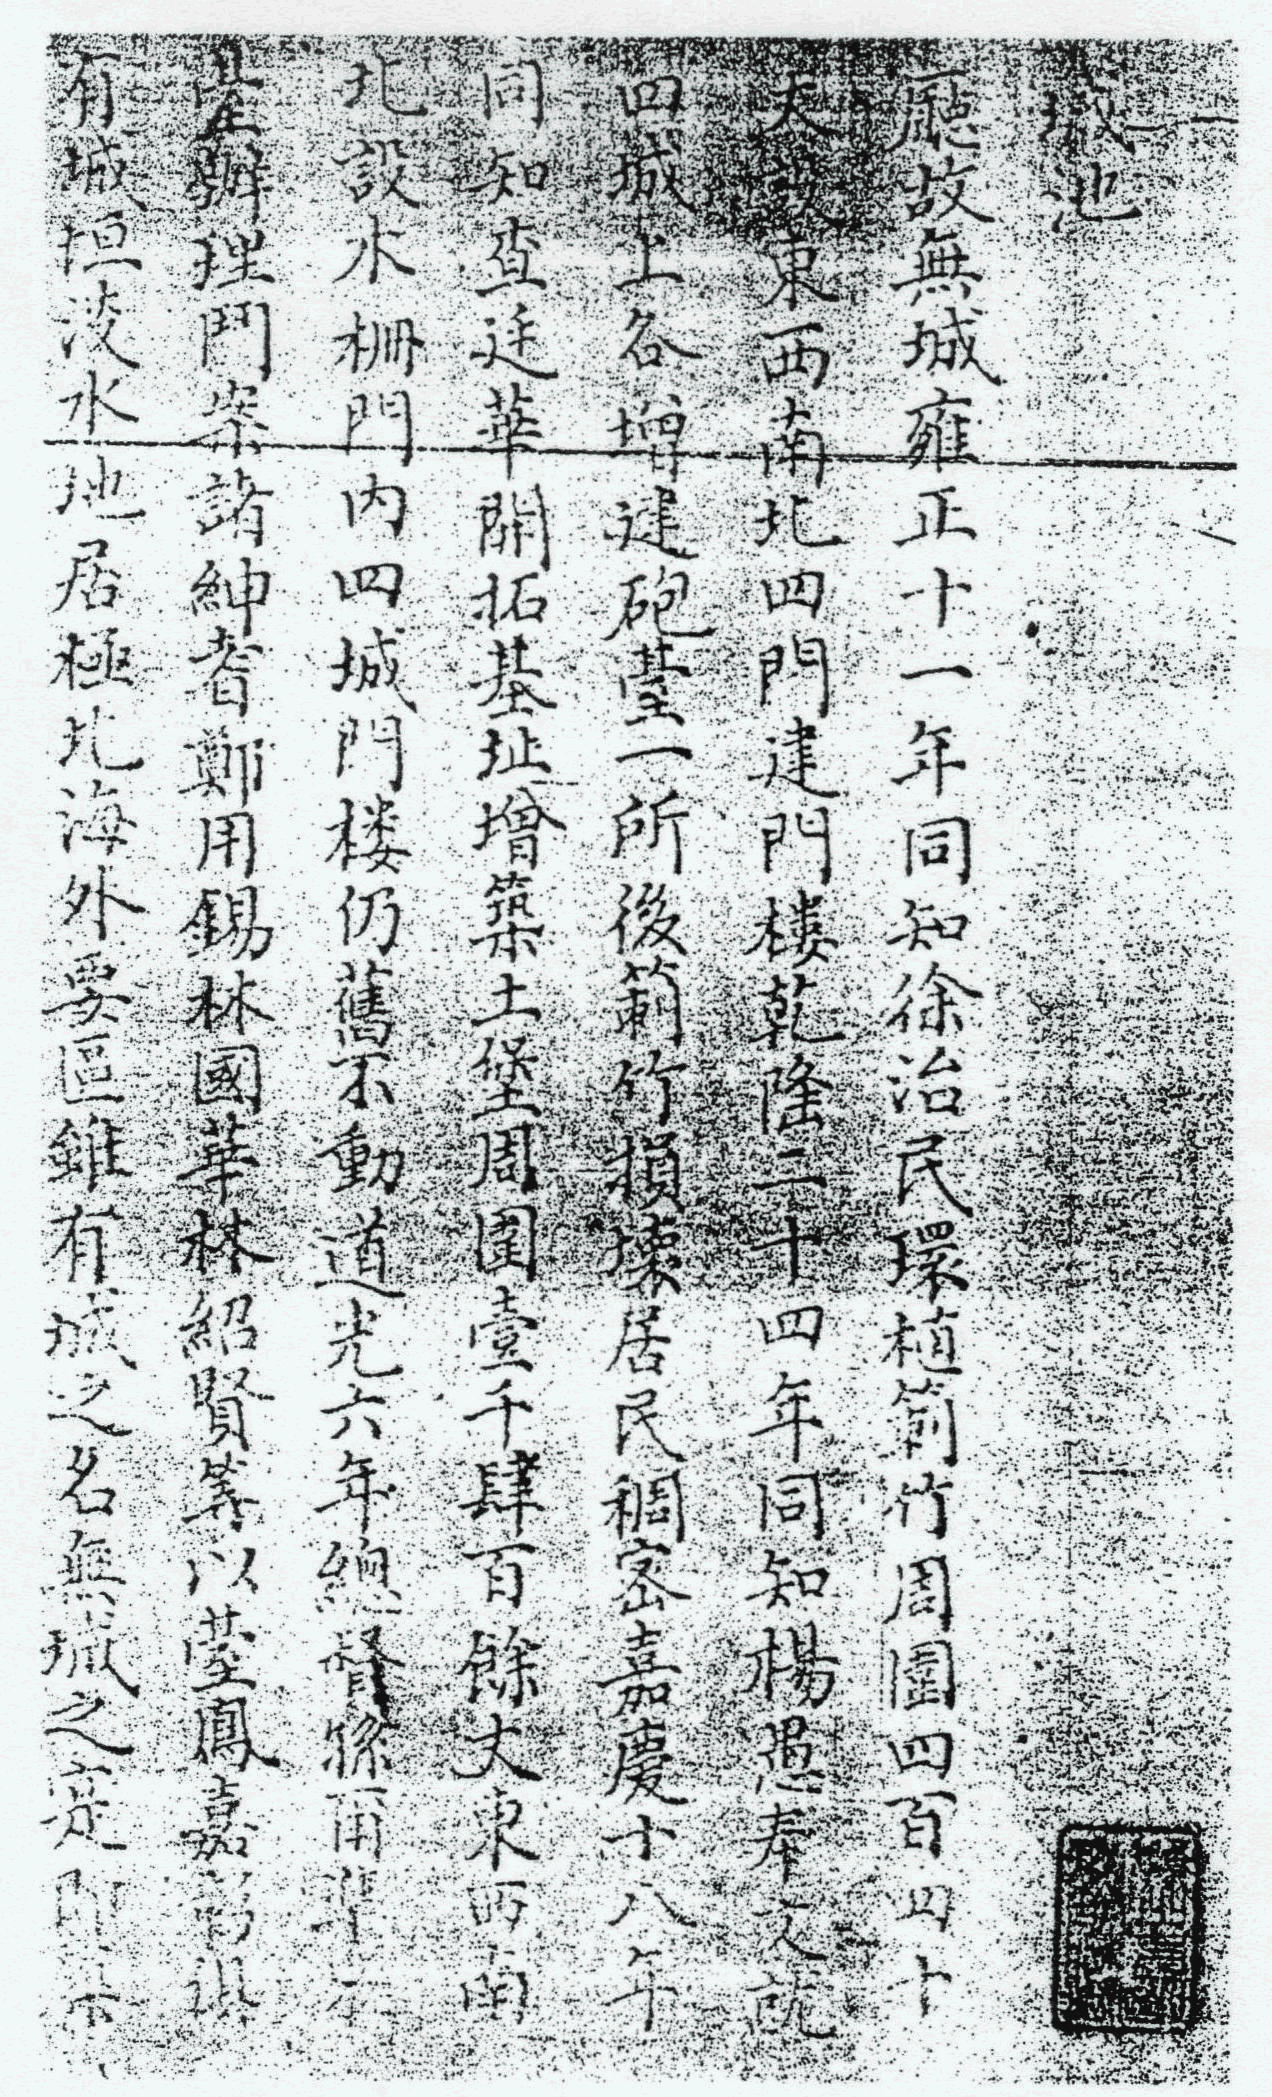 城池
廳故無城雍正十一年同知徐治民環植莿竹周圍四百四十
丈設東西南北四門建門樓乾隆二十四年同知楊愚奉文就
四城上各增建砲臺一所後莿竹損壞居民稠密嘉慶十八年
同知查廷華開拓基址增築土堡周圍壹千肆百餘丈東西南
北設水柵門內四城門楼仍舊不動道光六年總督孫爾準
臺辦理鬥案諸紳耆鄭用錫林國華林紹賢等以臺鳳嘉皆俱
有城垣淡水地居極北海外要區雖有城之名無城之寔即